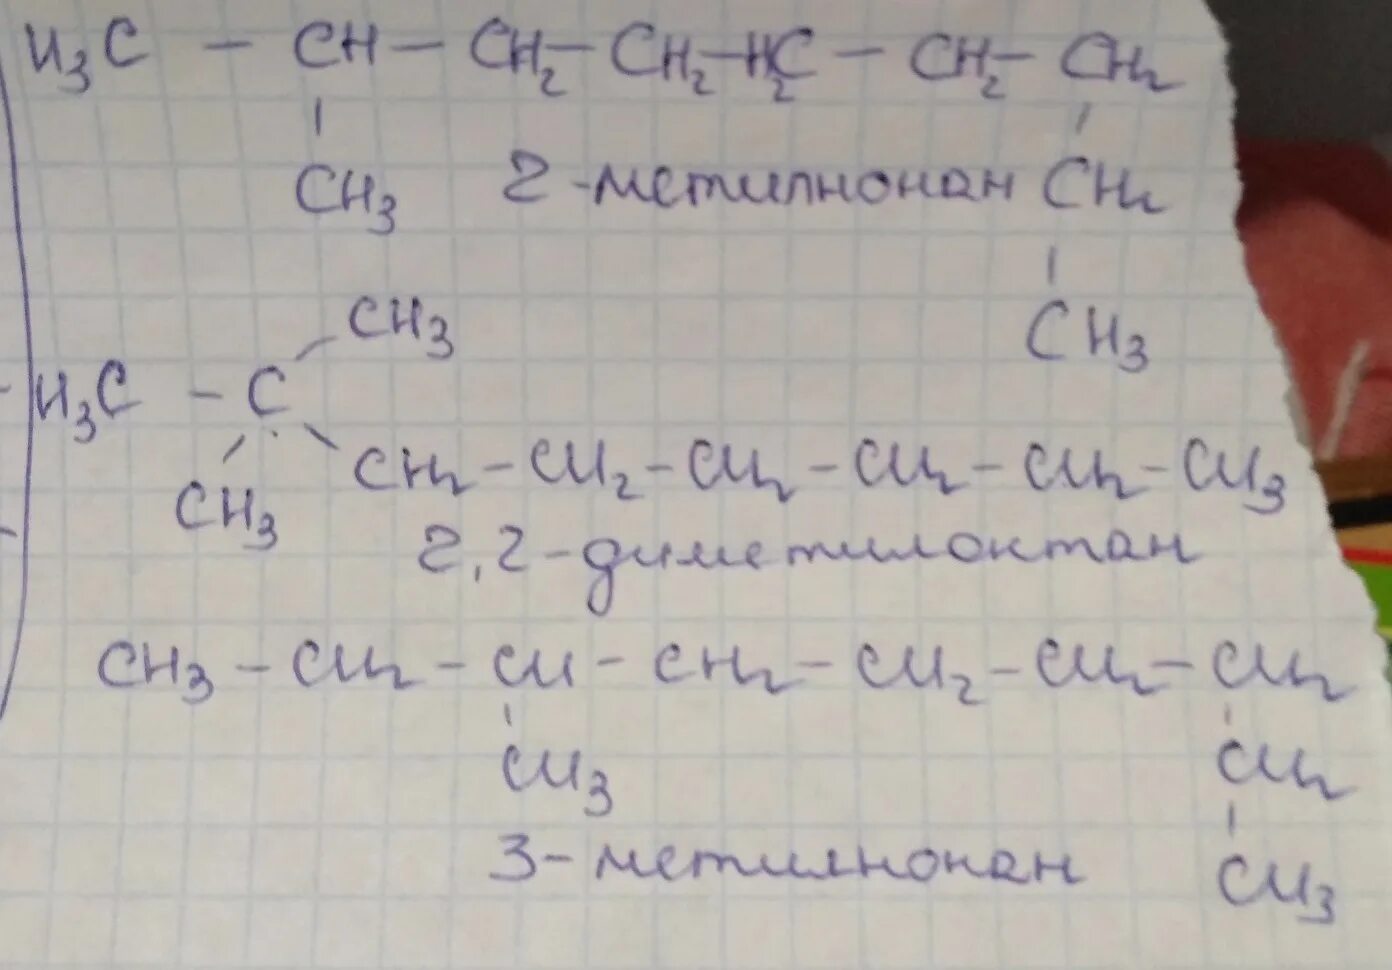 H₃C – CH – CH₂ – CH₂ – H₂C – CH₂ – CH₂
CH₃ 2-метилнонан CH₂
CH₃
CH₃
H₃C – C
CH₂ – CH₂ – CH₂ – CH₂ – CH₂ – CH₃
CH₃
2,2-диметилоктан
CH₃ – CH₂ – CH – CH₂ – CH₂ – CH₂ – CH₂
CH₃ CH₂
3-метилнонан CH₃